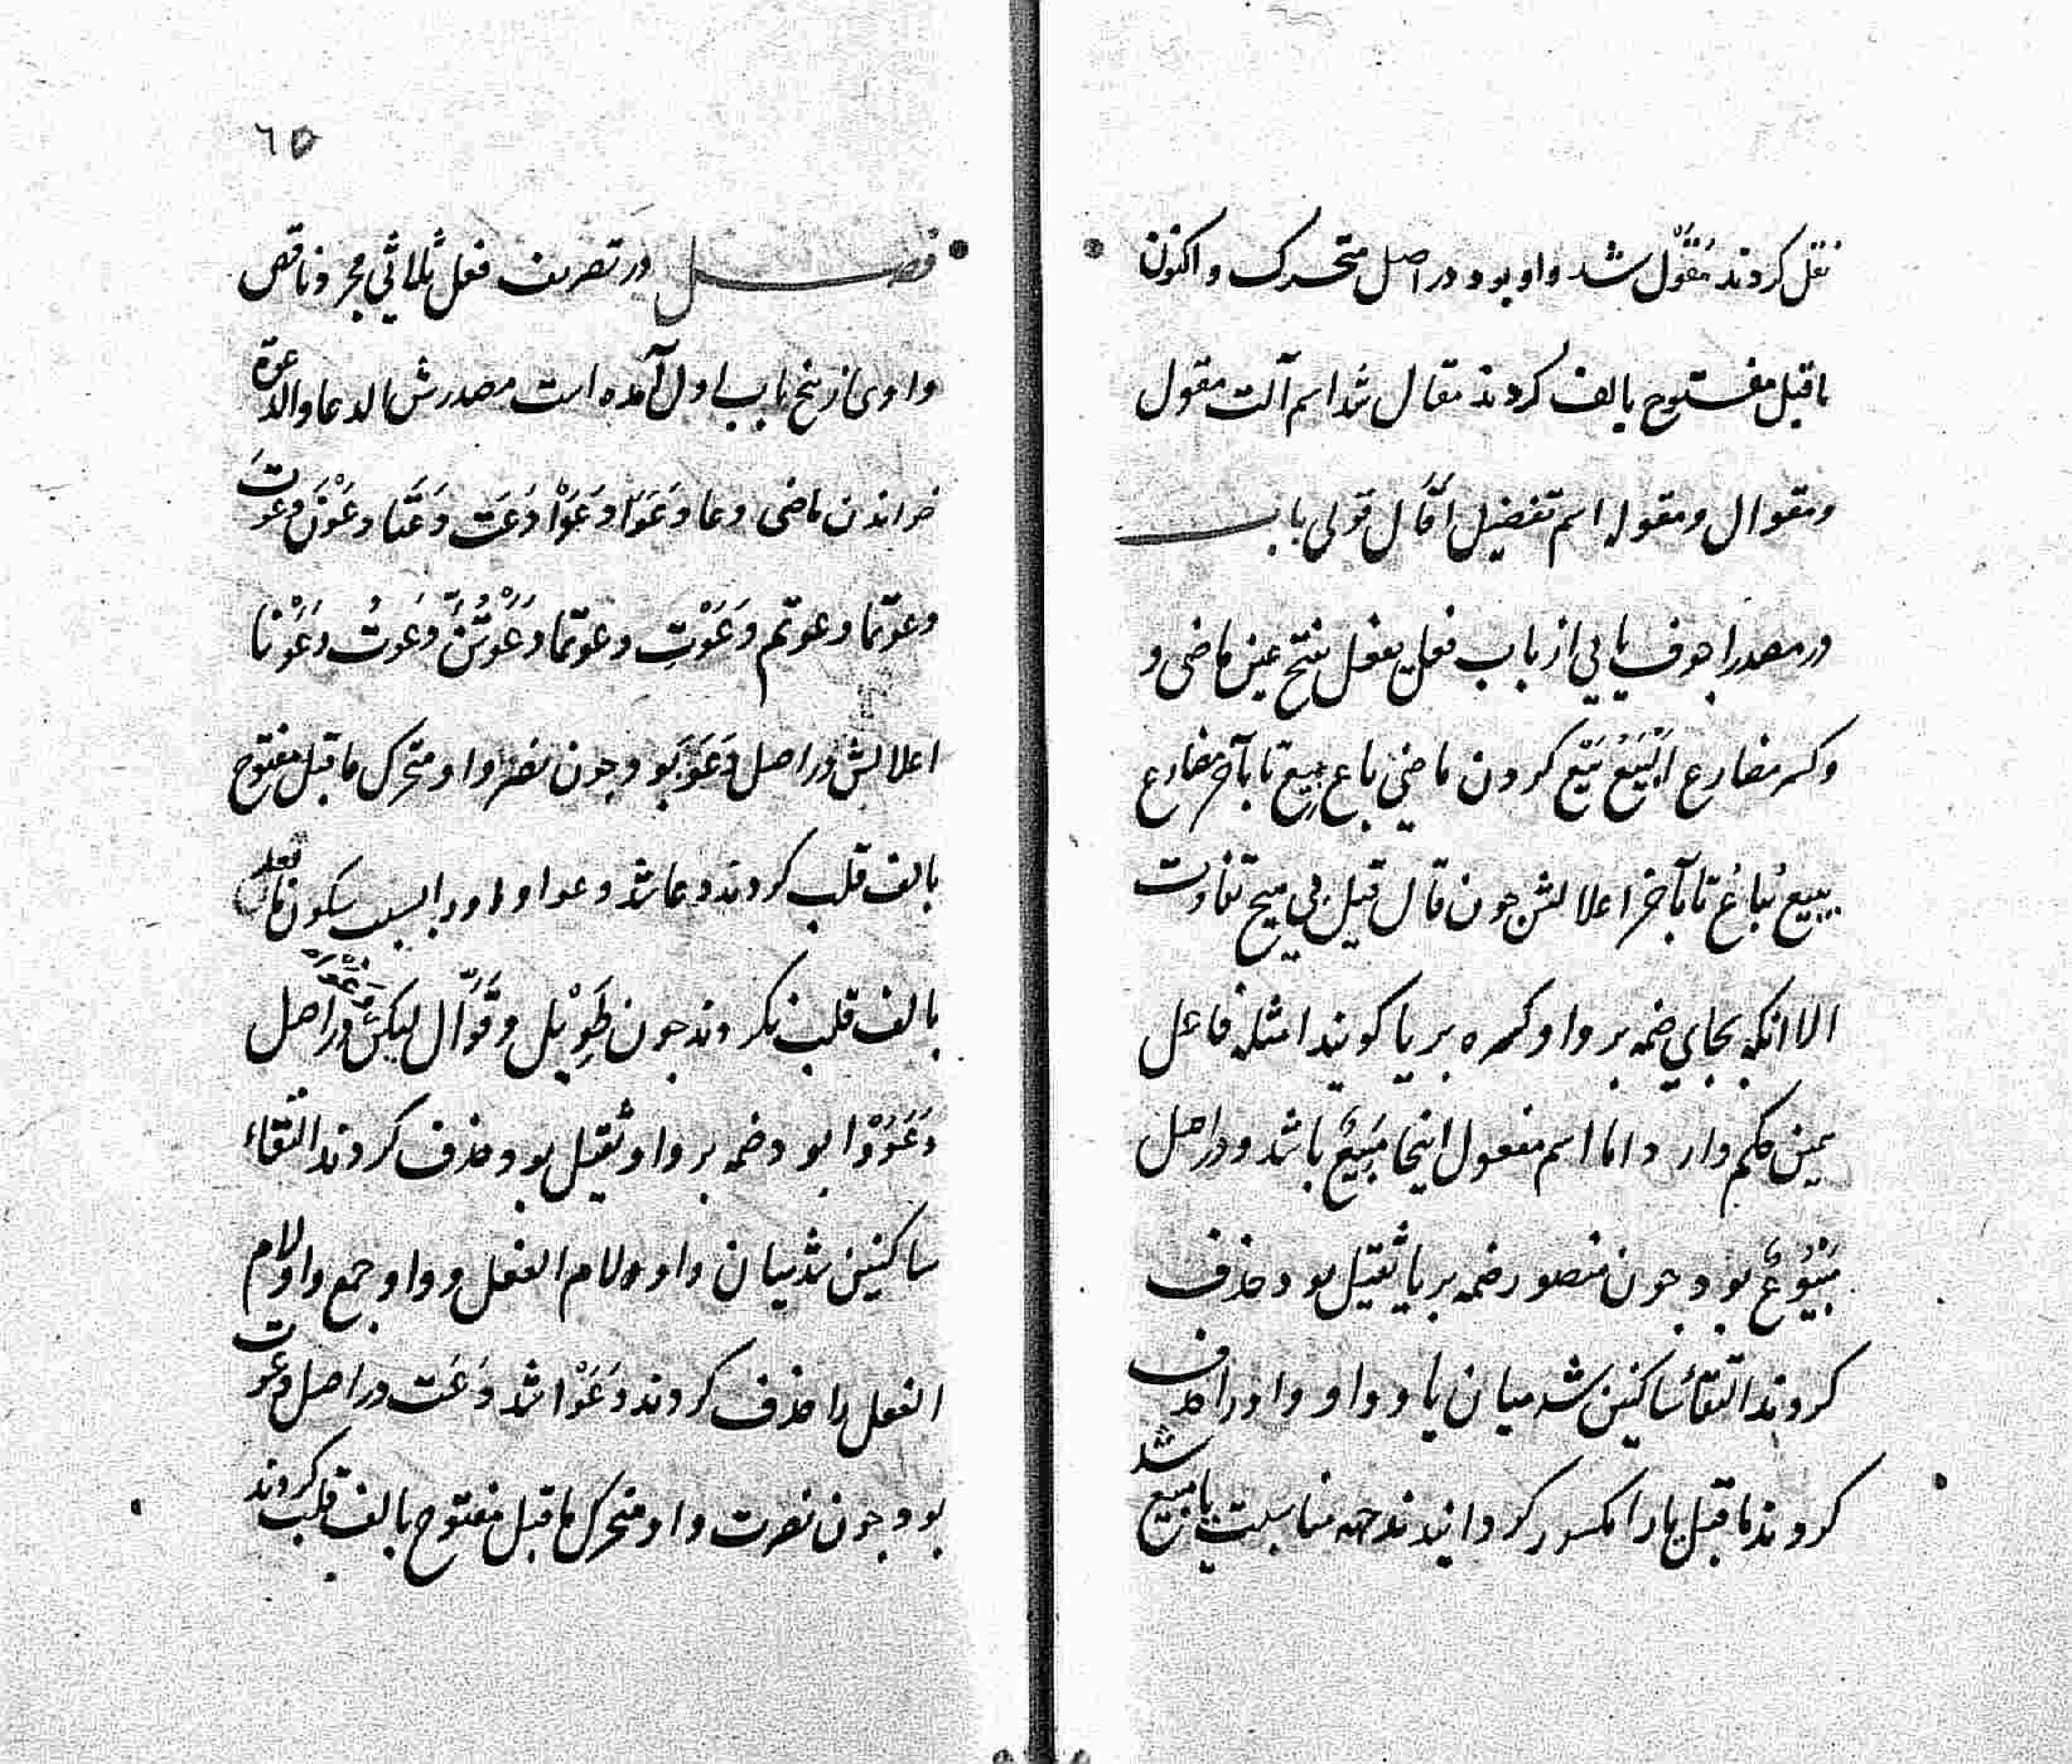 نقل کردند مَقَوْل شد واو بود در اصل متحرک و اکنون
ماقبل مفتوح بالف کردند مقال شد اسم آلت مقول
و مقوال و مقوله اسم تفضیل اَقَال قولی باب
در مصدر اجوف یایی از باب فعل یفعل بفتح عین ماضی و
و کسر مضارع اَلْبَیْعُ بَیْع کردن ماضی باع بیع تا بآخر مضارع
یبیع یُباعُ تا بآخر اعلالش چون قال قیل بی هیچ تفاوت
الا انکه بجای ضمه بر واو کسره بر یا کویند امثله فاعل
همین حکم دارد اما اسم مفعول اینجا مَبِیْع باشد و در اصل
مَبْیُوْعٌ بود چون منصور ضمه بر یا ثقیل بود حذف
کردند التقاء ساکنین شد میان یا و واو واو را حذف
کردند ماقبل یا را مکسور کردانیدند جهه مناسبت یا مبیع شد
٦٥
فصل در تصریف فعل ثلاثی مجرد ناقص
واوی از پنج باب اول آمده است مصدرش الدعا والدعوة
خواندن ماضی دعا دَعَوَا دَعَوْا دَعَت دَعَتَا دَعَوْنَ دعوتَ
دعوتما دعوتم دَعَوْتِ دعوتما دَعَوْتُنَّ دَعَوتُ دَعَوْنَا
اعلالش در اصل دَعَوَ بود چون نصر واو متحرک ماقبل مفتوح
بالف قلب کردند دعا شد دعوا واو را بسبب سکون ماقبل
بالف قلب نکردند چون طَوِیْل و قَوَّال لیکن در اصل
دَعَوُوْا بود ضمه بر واو ثقیل بود حذف کردند التقاء
ساکنین شد میان واو ولام الفعل و واو جمع واو لام
الفعل را حذف کردند دَعَوْا شد دَعَت در اصل دعوت
بود چون نصرت واو متحرک ماقبل مفتوح بالف قلب کردند